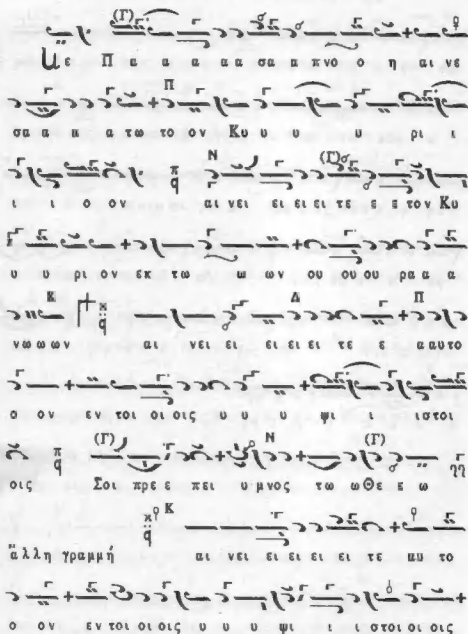 (Γ)
Με Π α α α α α σα α πνο ο η αι νε
Π
σα α α α τω το ον Κυ υ υ υ ρι ι
Ν (Γ)
ι ι ο ον π q αι νει ει ει ει τε ε ε τον Κυ
υ υ ρι ον εκ τω ω ων ου ου ου ρα α α
Κ Δ Π
νω ω ων αι νει ει ει ει ει τε ε α αυτο
ο ον εν τοι οι οις υ υ υ ψι ι ιστοι
(Γ) Ν (Γ)
οις Σοι πρε ε πει υ μνος τω ω Θε ε ω
Κ
άλλη γραμμή αι νει ει ει ει ει τε αυ το
ο ον εν τοι οι οις υ υ υ ψι ι ι στοι οι οις